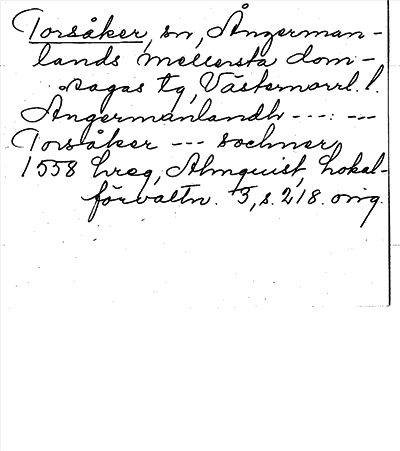 Torsåker, sn, Ångerman-
lands mellersta dom-
sagas tg, Västernorrl. l.
Angermanlandh ---: ---
Torsåker --- sochner
1558 hreg, Almquist, Lokal-
förvaltn. 3, s. 218. orig.